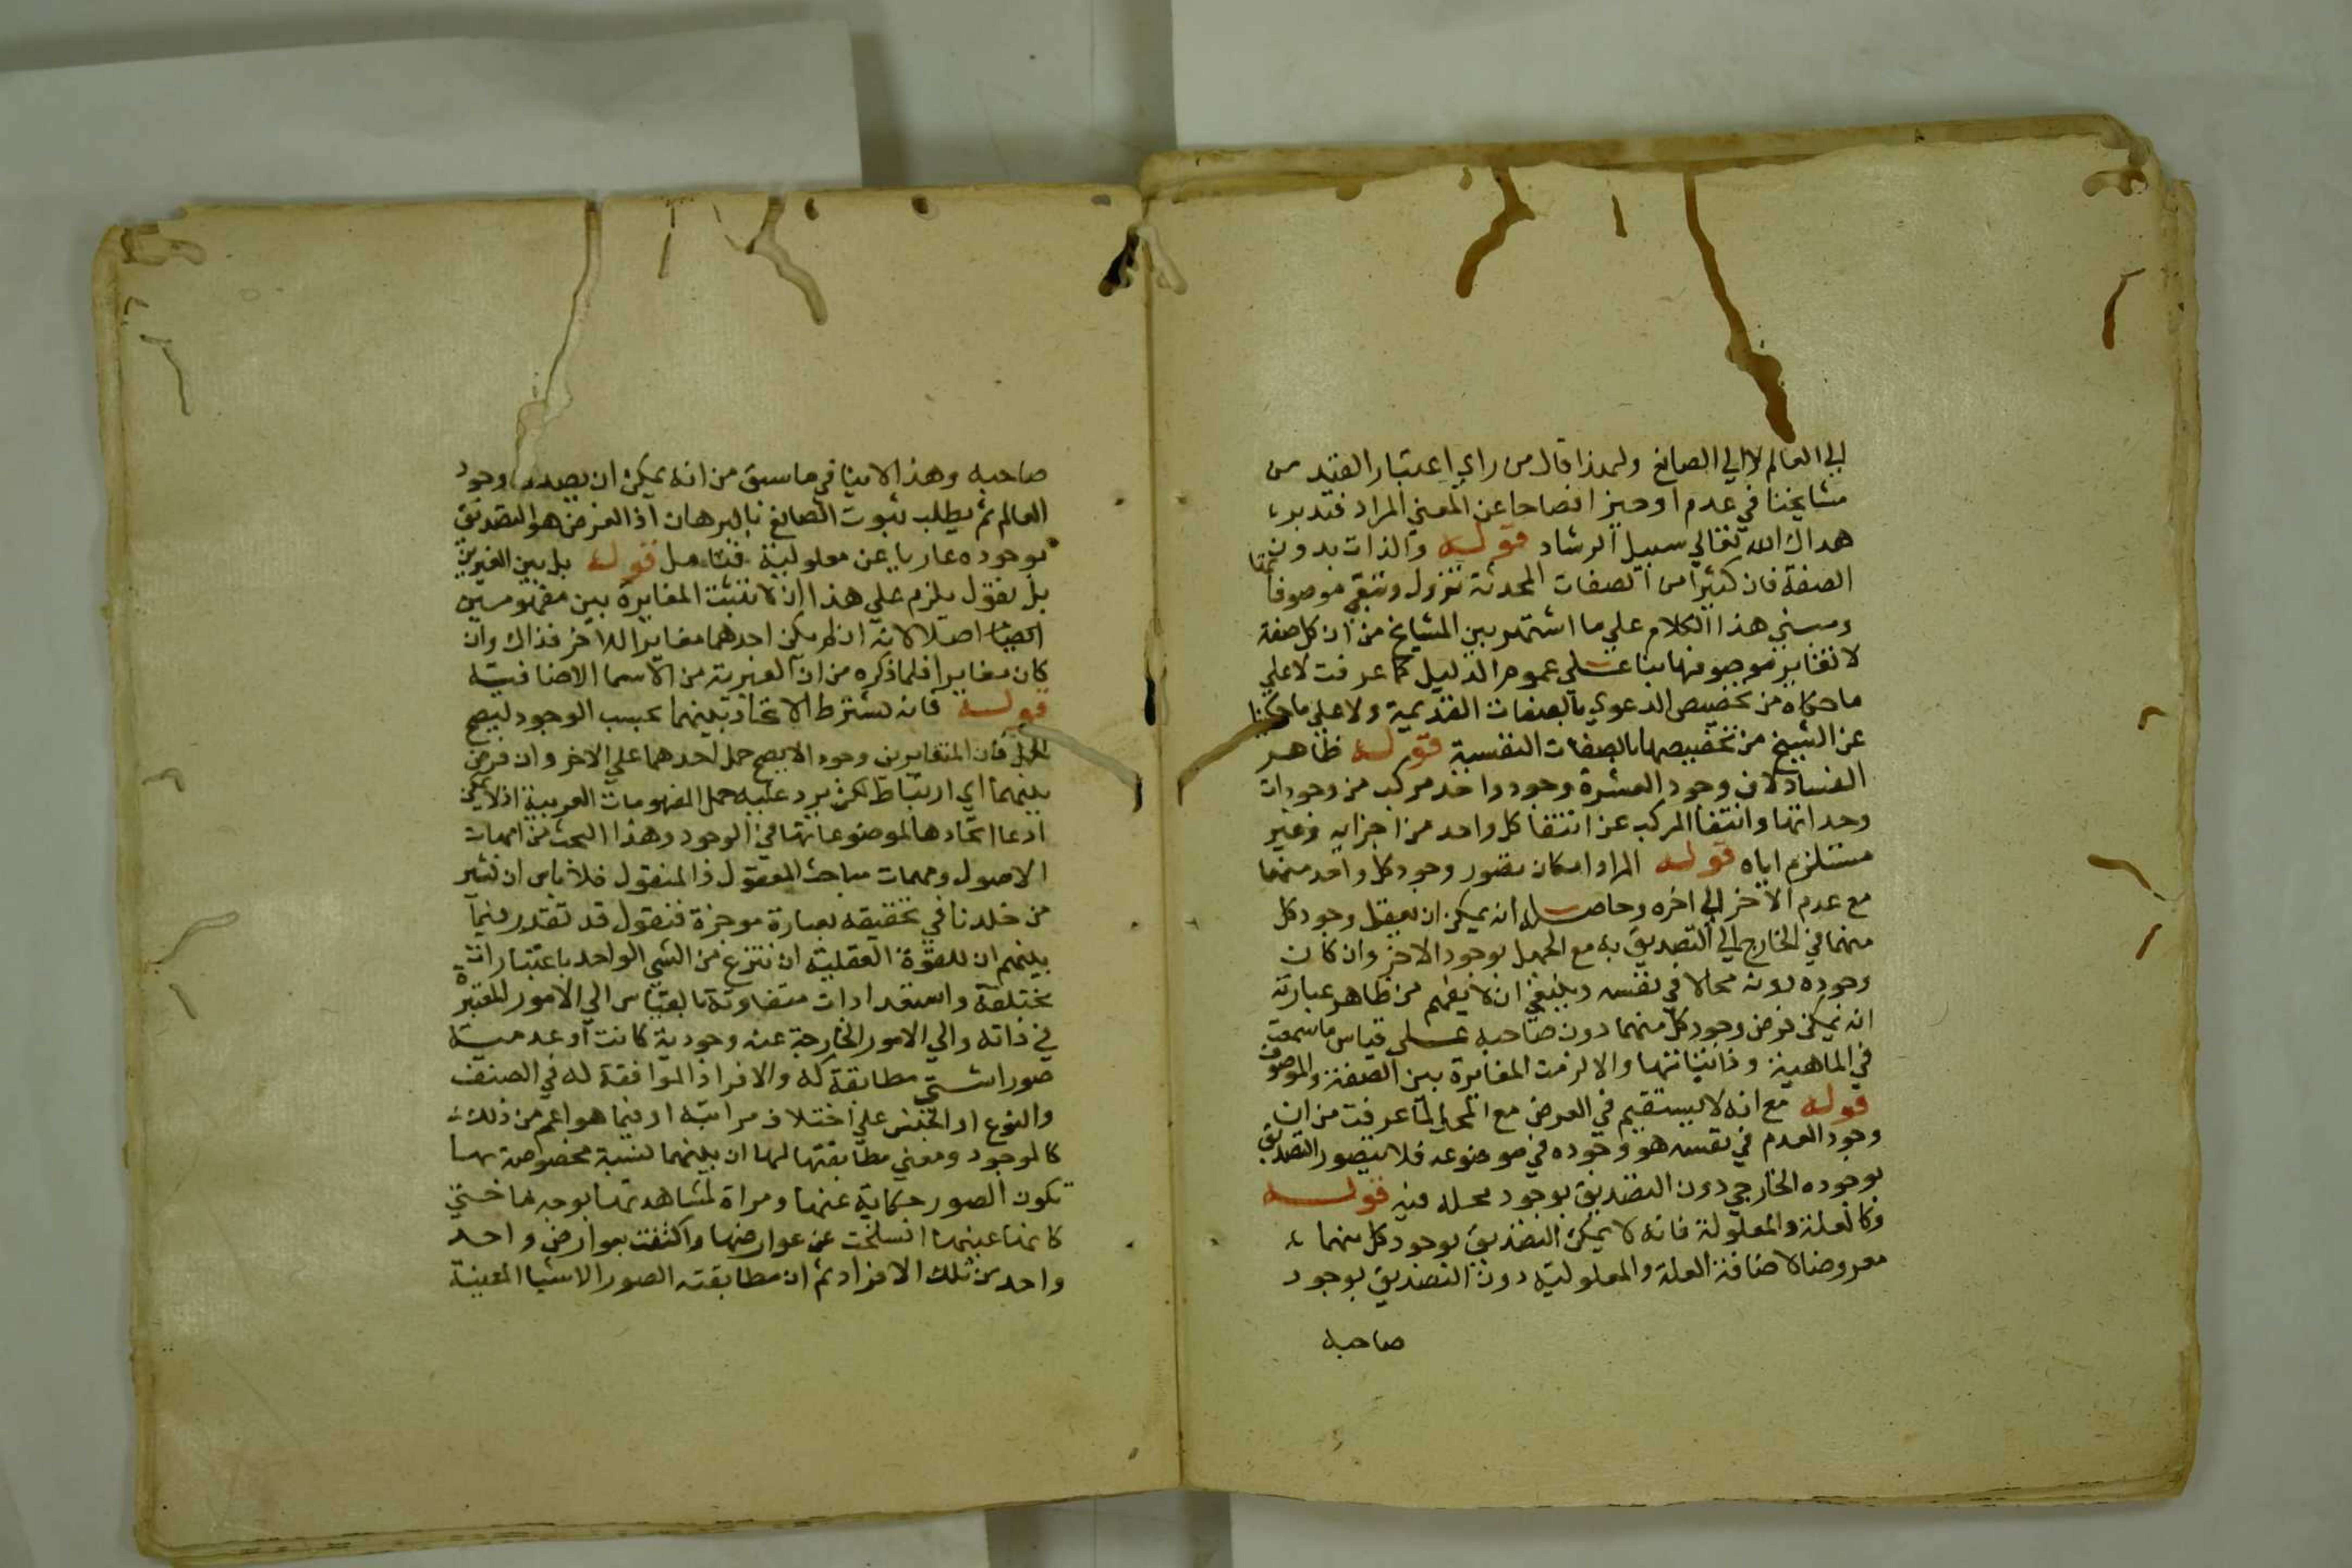 الي العالم لا الي الصانع ولهذا قال من راي اعتبار القيد من
مشايخنا في عدم او حيز افصاحا عن المعني المراد فتدبر
هداك الله تعالي سبيل الرشاد قوله والذات بدون
الصفة فان كثيرا من الصفات المحدثة تزول وتبقي موصوفاتها
ومبني هذا الكلام علي ما اشتهر بين المشايخ من ان كل صفة
لا تغاير موصوفها بنا علي عموم الدليل كما عرفت لا علي
ما حكاه من تخصيص الدعوي بالصفات القديمة ولا علي ما حكينا
عن الشيخ من تخصيصها بالصفات النفسية قوله ظاهر
الفساد لان وجود العشرة وجود واحد مركب من وجودات
وحداتها وانتفا المركب عن انتفا كل واحد من اجزايه وغير
مستلزم اياه قوله المراد امكان تصور وجود كل واحد منهما
مع عدم الاخر الي اخره وحاصله انه يمكن ان يعقل وجود كل
منهما في الخارج الي التصديق به مع الجهل بوجود الاخر وان كان
وجوده دونه محالا في نفسه وينبغي ان لا يفهم من ظاهر عبارته
انه يمكن فرض وجود كل منهما دون صاحبه علي قياس ما سمعت
في الماهية وذاتياتها والا لزمت المغايرة بين الصفة والموصوف
قوله مع انه لا يستقيم في العرض مع المحل لما عرفت من ان
وجود العدم في نفسه هو وجوده في موضوعه فلا يتصور التصديق
بوجوده الخارجي دون التصديق بوجود محله فيه قوله
وكالعلة والمعلولة فانه لا يمكن التصديق بوجود كل منهما
معروضا لاضافة العلة والمعلولية دون التصديق بوجود
صاحبه
صاحبه وهذا لا ينافي ما سبق من انه يمكن ان يصدر وجود
العالم ثم يطلب ثبوت الصانع بالبرهان اذ الغرض هو التصديق
بوجوده عاريا عن معلولية فتامل قوله بل بين الغيرين
بل نقول يلزم علي هذا ان لا تثبت المغايرة بين مفهومين
اصلا لانه ان لم يكن احدهما مغايرا للاخر فذاك وان
كان مغايرا فلما ذكره من ان الغيرية من الاسما الاضافية
قوله فانه يشترط الاتحاد بينهما بحسب الوجود ليصح
الحمل فان المتغايرين وجودا لا يصح حمل احدهما علي الاخر وان فرض
بينهما اي ارتباط لكن يرد عليه حمل المفهومات العدمية اذ لا يمكن
ادعا اتحادها لموضوعاتها في الوجود وهذا البحث من امهات
الاصول ومهمات مباحث المعقول والمنقول فلا باس ان نشير
من خلدنا في تحقيقه بعبارة موجزة فنقول قد تقدر فيما
بينهم ان للقوة العقلية ان تنتزع من الشي الواحد باعتبارات
مختلفة واستعدادات متفاوتة بالقياس الي الامور المعتبرة
في ذاته والي الامور الخارجة عنه وجودية كانت او عدمية
صورا شتي مطابقة له والافراد الموافقة له في الصنف
والنوع او الجنس علي اختلاف مراتبه او فيما هو اعم من ذلك
كالموجود ومعني مطابقتها لها ان بينهما نسبة مخصوصة بها
تكون الصور حكاية عنها ومراة لمشاهدتها بوجه ما حتي
كانها عينها انسلخت عن عوارضها واكتفت بعوارض واحد
واحد من تلك الافراد ثم ان مطابقته الصور الاشيا المعينة